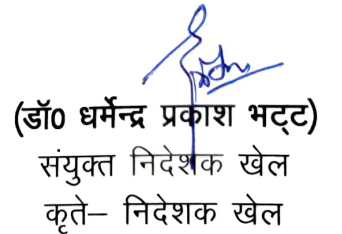 (डॉ0 धर्मेन्द्र प्रकाश भट्ट)
संयुक्त निदेशक खेल
कृते– निदेशक खेल